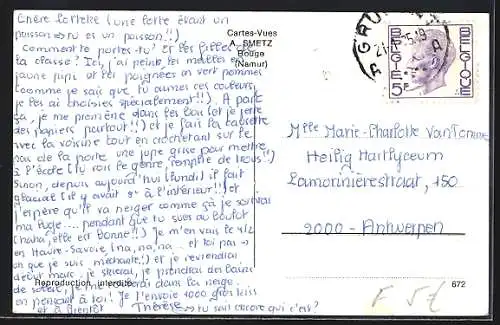 Chère Lottelte (une lotte étant un
poisson => tu es un poisson !!)
Comment te portes-tu ? Et les filles de
la classe ? Ici, j'ai peint les meubles en
jaune pipi et les poignées en vert pommes
(comme je sais que tu aimes ces couleurs,
je les ai choisies spécialement !!) A part
ça, je me promène dans les bois (et je jette
des papiers partout !!) et je fait la causette
avec la voisine tout en crochetant sur le
pas de la porte une jupe grise pour mettre
à l'école (tu vois le genre, remplie de trous !!)
Sinon, depuis aujourd'hui (lundi) il fait
glacial (il y avait 8° à l'intérieur !!) et
j'espère qu'il va neiger comme ça je
ma luge .... pendant que tu sues au boulot
(haha, elle est bonne !!) Je m'en vais le 4/2
en Haute-Savoie (na, na, na .. et toi pas =>
oh que je suis méchante !) et je reviendrai
début mars. Je skierai, je prendrai des bains
de soleil, je me roulerai dans la neige
en pensant à toi ! Je t'envoie 1000 gros kiss
et à bientôt Thérèse => tu sais encore qui c'est ?
Reproduction interdite
Cartes-Vues
A. SMETZ
Bouge
(Namur)
BELGIE
BELGIQUE
5F
Mlle Marie-Charlotte Van
Heilig Hartlyceum
Lamorinièrestraat, 150
2000 - Antwerpen
672
F 5€